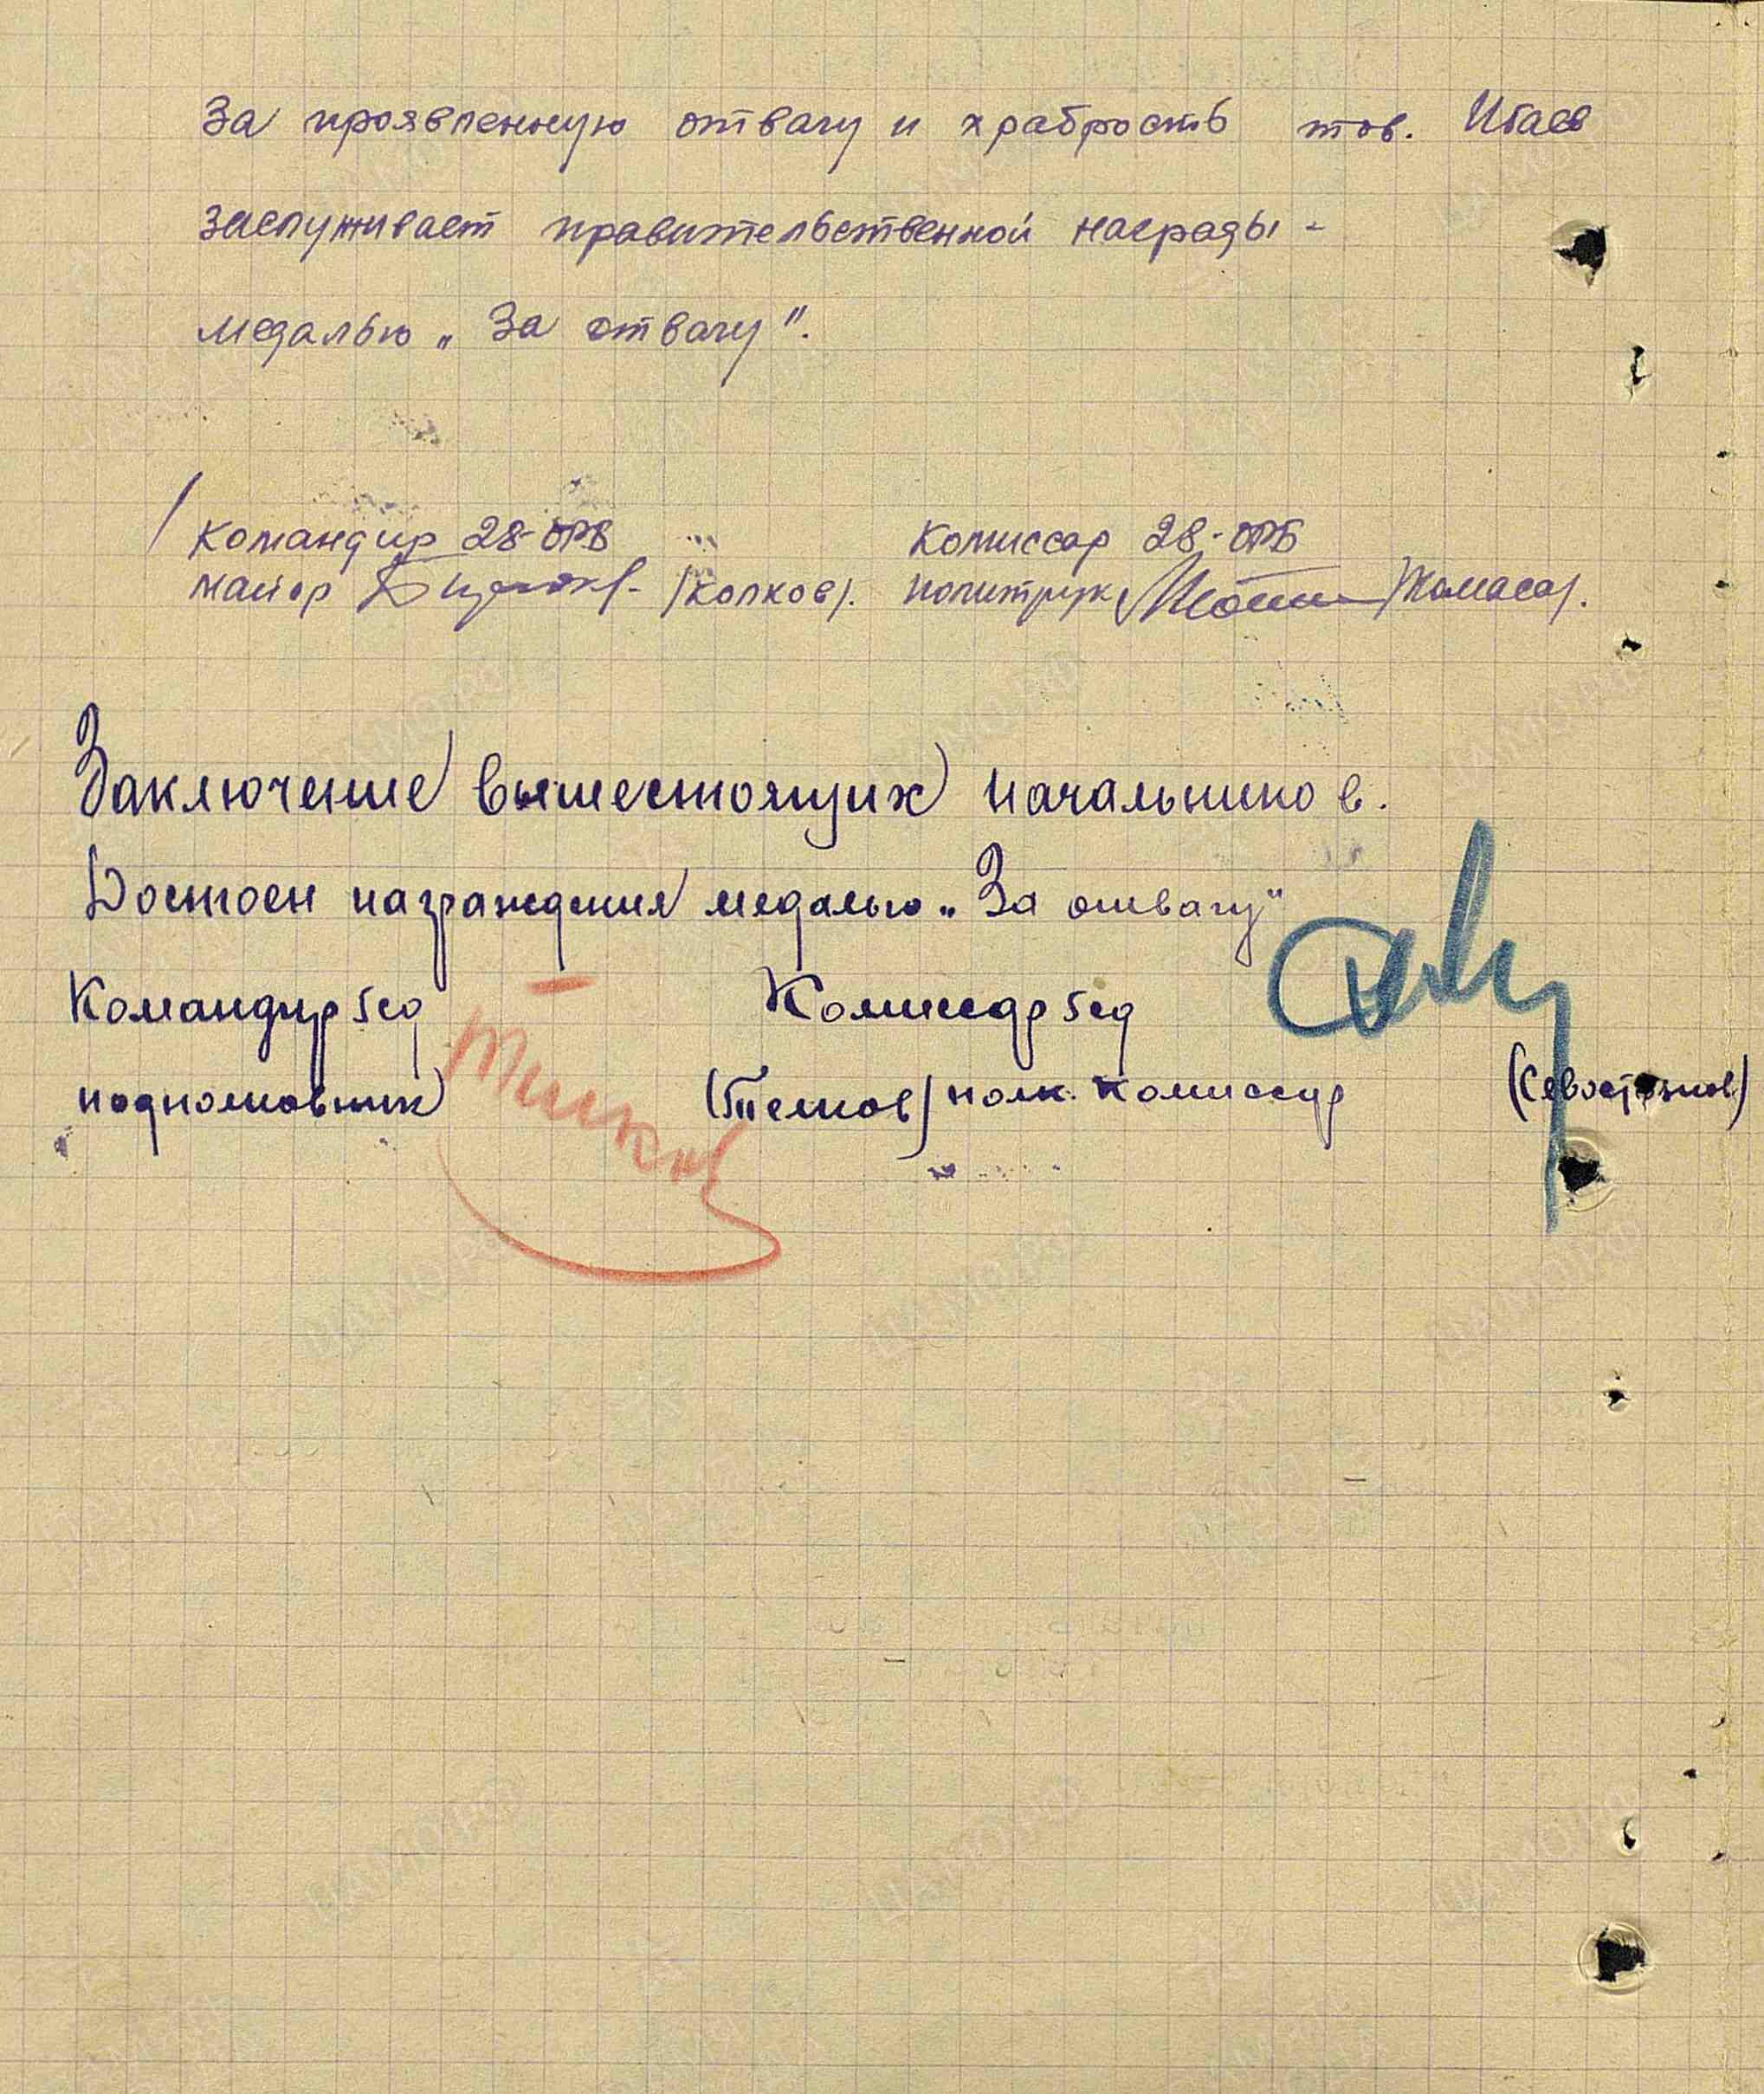 За проявленную отвагу и храбрость тов. Ибаев
заслуживает правительственной награды -
медалью „За отвагу".
Командир 28-ОРБ Комиссар 28-ОРБ
майор /Колков/. политрук
Заключение вышестоящих начальников.
Достоен награждения медалью „За отвагу"
Командир 5сд Комиссар 5сд
подполковник (Телков) полк. комиссар (Севостьянов)